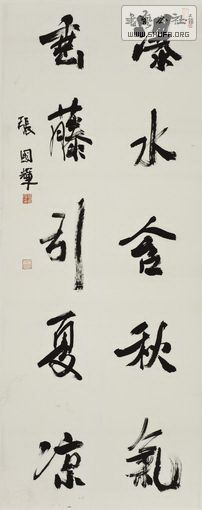 瀑水含秋氣
垂藤引夏凉
張國輝
www.SHUFA.ORG